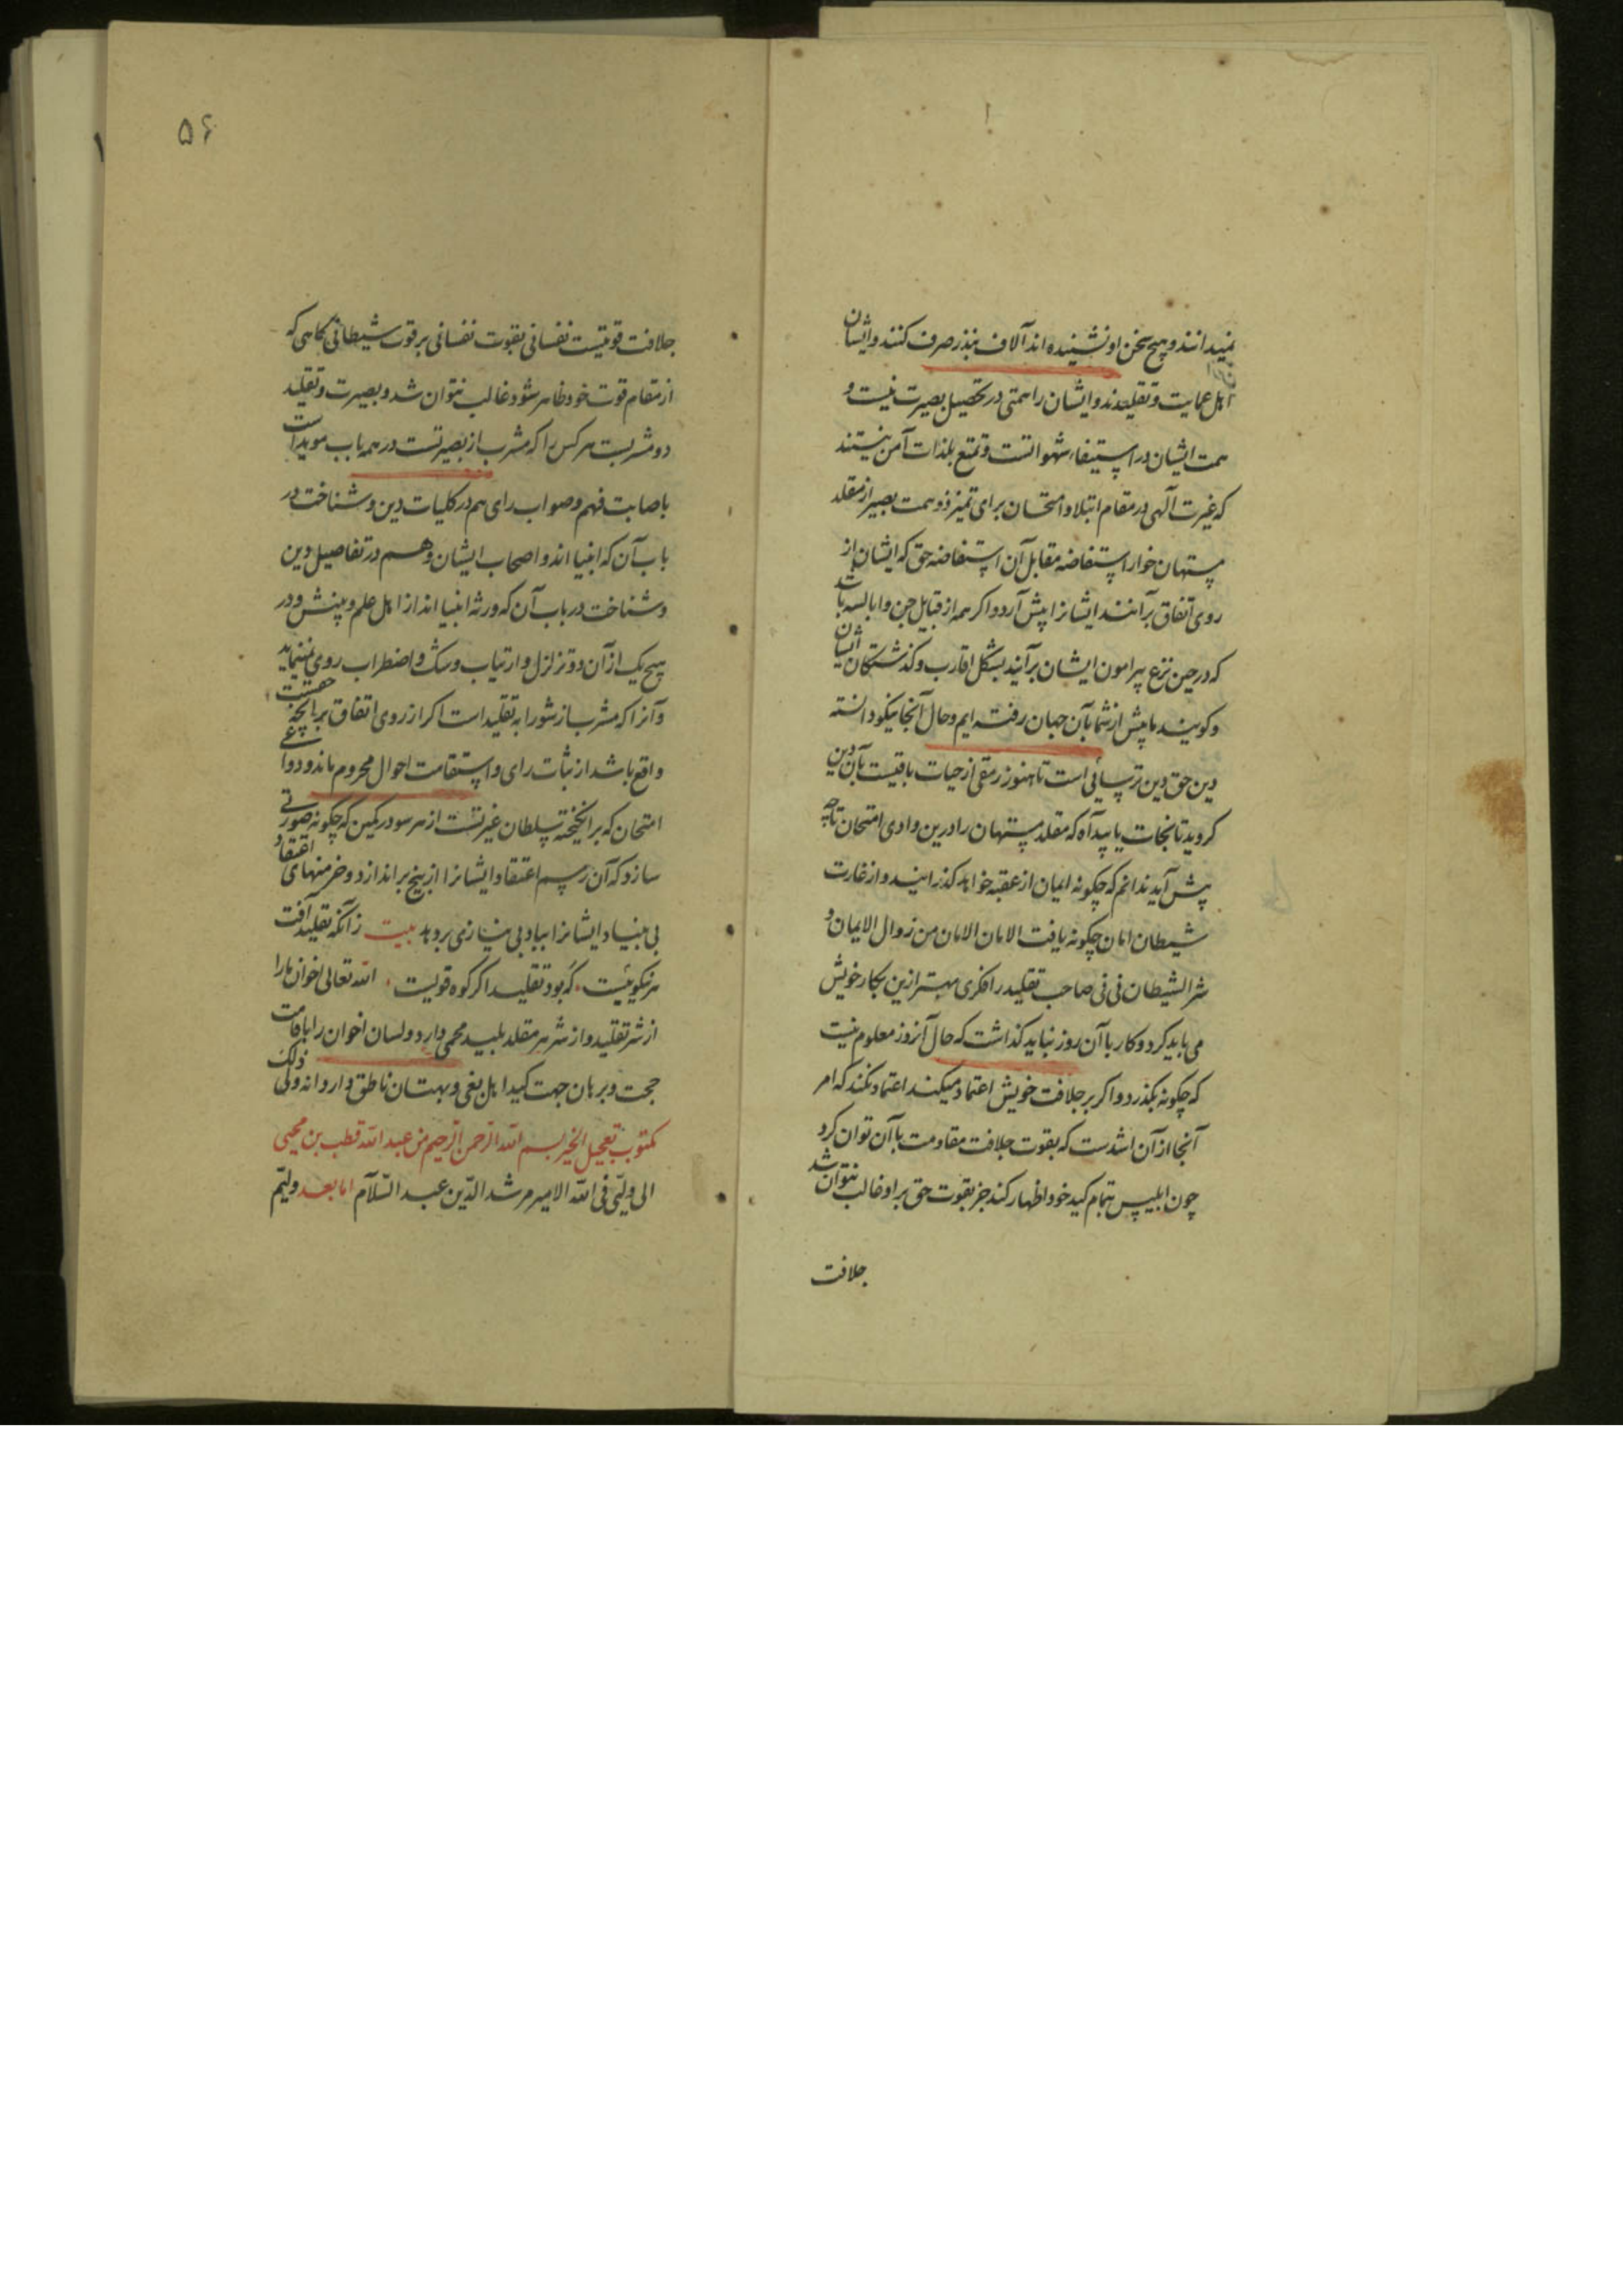 نمیدانند و هیچ سخن او نشنیده اند آلاف نذر صرف کنند و ایشان
اهل عمایت و تقلیدند و ایشان را همتی در تحصیل بصیرت نیست و
همت ایشان در استیفاء شهواتست و تمتع بلذات آمن نیستند
که غیرت آلهی در مقام ابتلا و امتحان برای تمیز ذو همت بصیر از مقلد
مستهان خوار استفاضه مقابل آن استفاضه حق که ایشان از
روی اتفاق برآنند ایشانرا پیش آرد و اکر همه از قبایل جن و ابالسه باشد
که در حین نزع پیرامون ایشان برآیند بشکل اقارب و کذشتکان ایشان
و کویند ما پیش از شما بآن جهان رفته ایم و حال آنجا نیکو دانسته
دین حق دین ترسائی است تا هنوز رمقی از حیات باقیست بآن دین
کروید تا نجات یابید آه که مقلد مستهان را درین وادی امتحان تا چه
پیش آید ندانم که چکونه ایمان از عقبه خواهد کذرانید و از غارت
شیطان امان چکونه یافت الامان الامان من زوال الایمان و
شر الشیطان فی فی صاحب تقلید را فکری بهتر ازین بکار خویش
می باید کرد و کار با آن روز نباید کذاشت که حال آنروز معلوم نیست
که چکونه بکذرد و اکر بر جلافت خویش اعتماد میکند اعتماد نکند که امر
آنجا از آن اشدست که بقوت جلافت مقاومت با آن توان کرد
چون ابلیس بتمام کید خود اظهار کند جز بقوت حق بر او غالب نتوان شد
جلافت
۵۶
جلافت قوتیست نفسانی بقوت نفسانی بر قوت شیطانی کاهی که
از مقام قوت خود ظاهر شود غالب نتوان شد و بصیرت و تقلید
دو مشربست هر کس را که مشرب از بصیرتست در همه باب موید است
باصابت فهم و صواب رای هم در کلیات دین و شناخت در
باب آن که انبیا اند و اصحاب ایشان و هم در تفاصیل دین
و شناخت در باب آن که ورثه انبیا اند از اهل علم و بینش و در
هیچ یک از آن دو تزلزل و ارتیاب و شک و اضطراب روی نمینماید
و آنرا که مشرب از شورابه تقلید است اکر از روی اتفاق بر آنچه حقست
واقع باشد از ثبات رای و استقامت احوال محروم ماند و دواعی
امتحان که برانکیخته سلطان غیرتست از هر سو در کمین که چکونه صورتی
سازد که آن رسم اعتقاد ایشانرا از بیخ براندازد و خرمنهای اعتقاد
بی بنیاد ایشانرا بباد بی نیازی بردهد بیت زآنکه تقلید آفت
هر نیکوییست که بود تقلید اکر کوه قویست الله تعالی اخوان ما را
از شر تقلید و از شر هر مقلد بلید محمی دارد و لسان اخوان را باقامت
حجت و برهان جهت کید اهل بغی و بهتان ناطق داراد انه ولی ذلک
مکتوب تعجیل الخیر بسم الله الرحمن الرحیم من عبد الله قطب بن محیی
الی ولیی فی الله الامیر مرشد الدین عبد السلام اما بعد ولیم